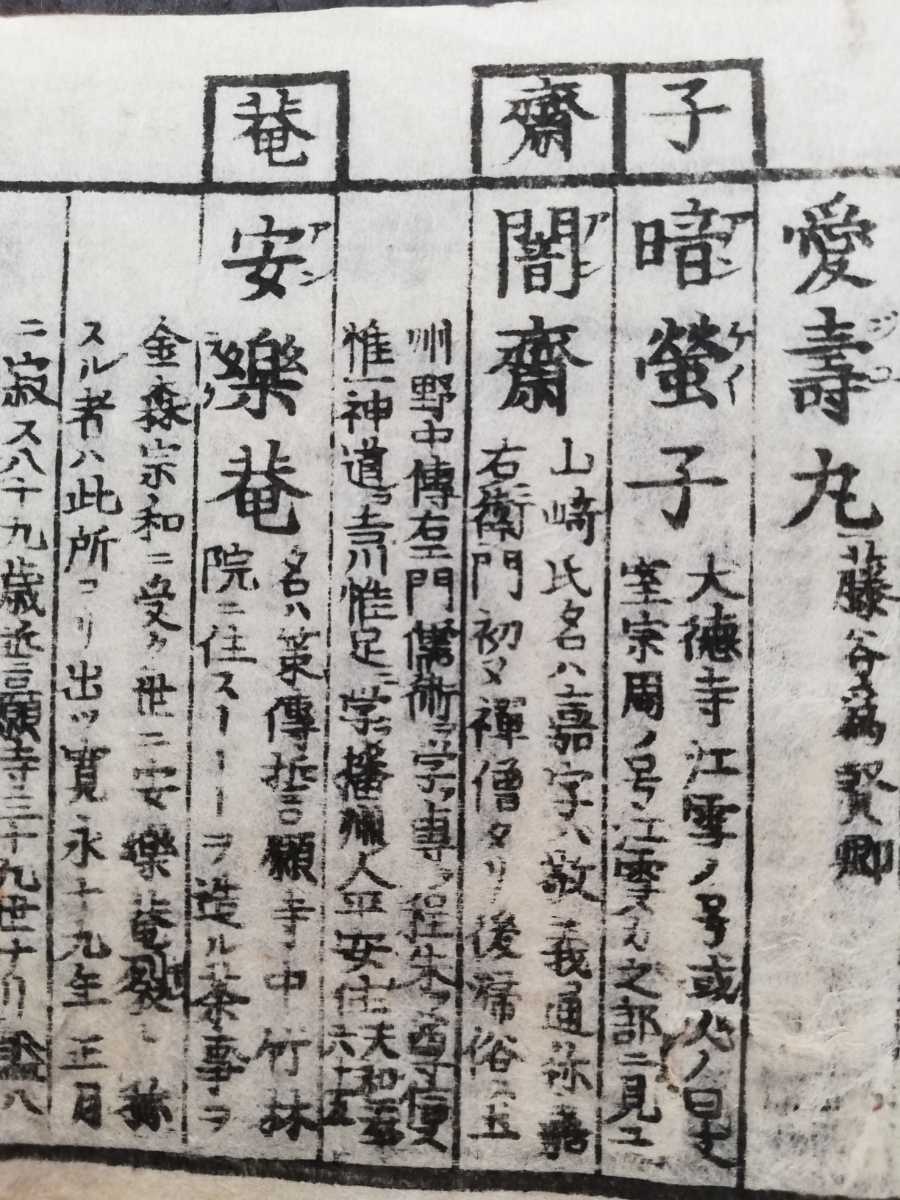 子
齋
菴
愛壽丸
藤谷為賢卿
暗螢子
アンケイ
大德寺江雪ノ号或
室宗周ノ号江雪ハカ之部ニ見ユ
闇齋
アン
山崎氏名ハ嘉字ハ敬義通称嘉
右衛門初メ禅僧タリ後帰俗シ土
州野中傳右エ門儒術ヲ学ヒ専ラ程朱ヲ
惟一神道ヲ吉川惟足ニ学フ播州人平安住天和二
六十五
安樂菴
アンラク
名ハ策傳誓願寺中竹林
院ニ住スーーーヲ造ル茶事ヲ
金森宗和ニ受ク世ニ安樂菴裂ト称
スル者ハ此所ヨリ出ツ寛永十九年正月
ニ寂ス八十九歳誓願寺三十九世